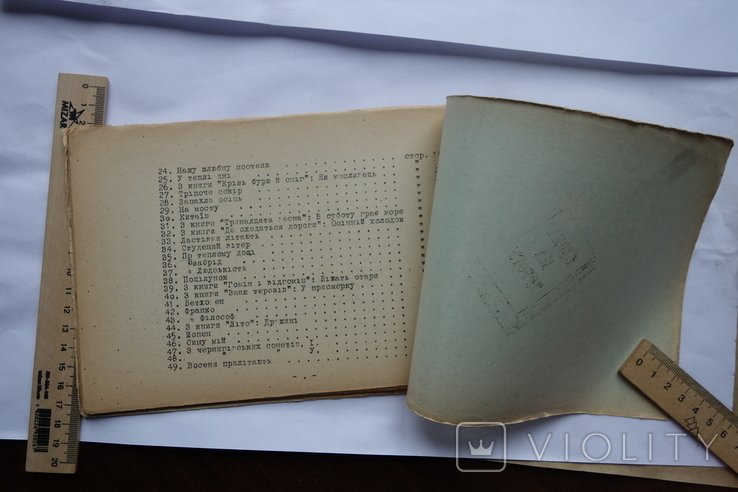 24. Нашу шлюбну постелю . . . . . . . . . . . . . стор.
25. У теплі дні
26. З книги "Крізь бурю й сніг": Як мисливець
27. Тріпоче сокір
28. Запахла осінь
29. На мосту
30. Китаїв
31. З книги "Тринадцята весна": В суботу грав море
32. З книги "Де сходяться дороги": Осінній холодок
33. Ластівки літають
34. Студений вітер
35. По теплому дощі
36. Фаабрід
37. Людськість
38. Поцілунок
39. З книги "Гомін і відгомін": Біжать отари
40. З книги "Знак терезів": У присмерку
41. Бетховен
42. Франко
43. Філософ
44. З книги "Літо": Дружині
45. Шопен
46. Сину мій
47. З чернігівських сонетів, I
48. " " " У
49. Восени прилітають
MIZAR
0 1 2
10 11 12 13 14 15 16 17 18 19 20
0 1 2 3 4 5 6 7
VIOLITY